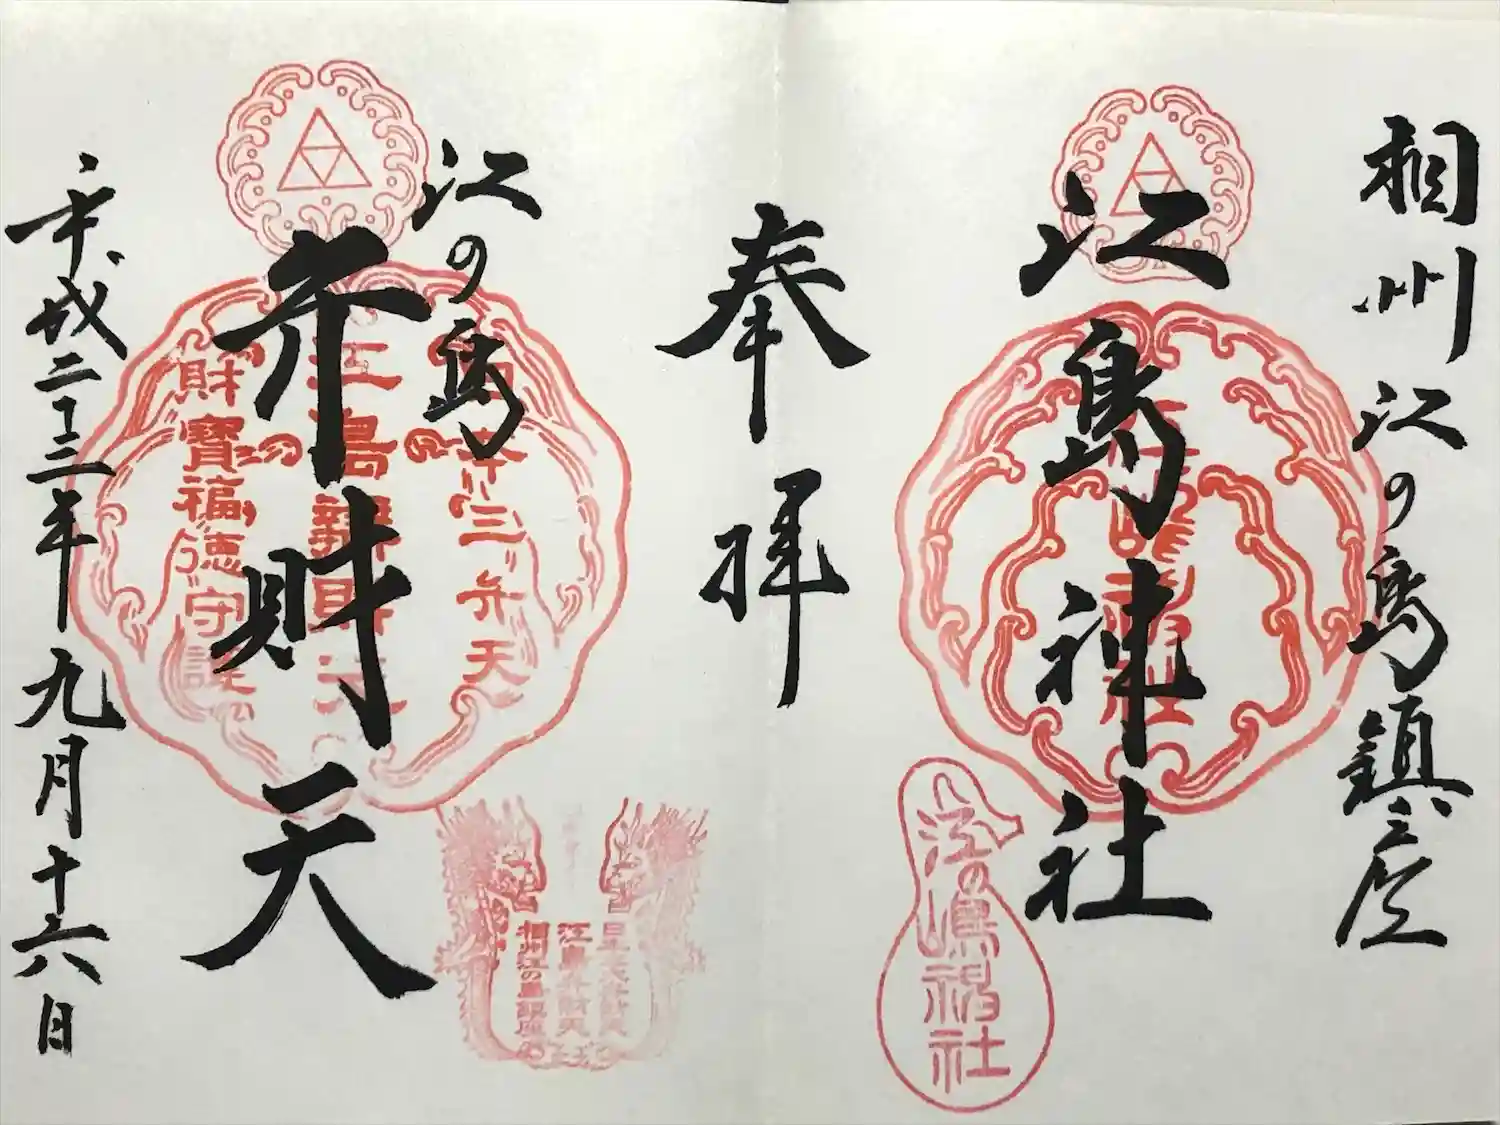 相州江の島鎮座
江島神社
奉拝
江の島
弁財天
平成二十三年九月十六日
江島弁財天
三弁天
財寳福徳守護
江の嶋
社
日本三大弁財天
江島弁財天
相州江の島鎮座